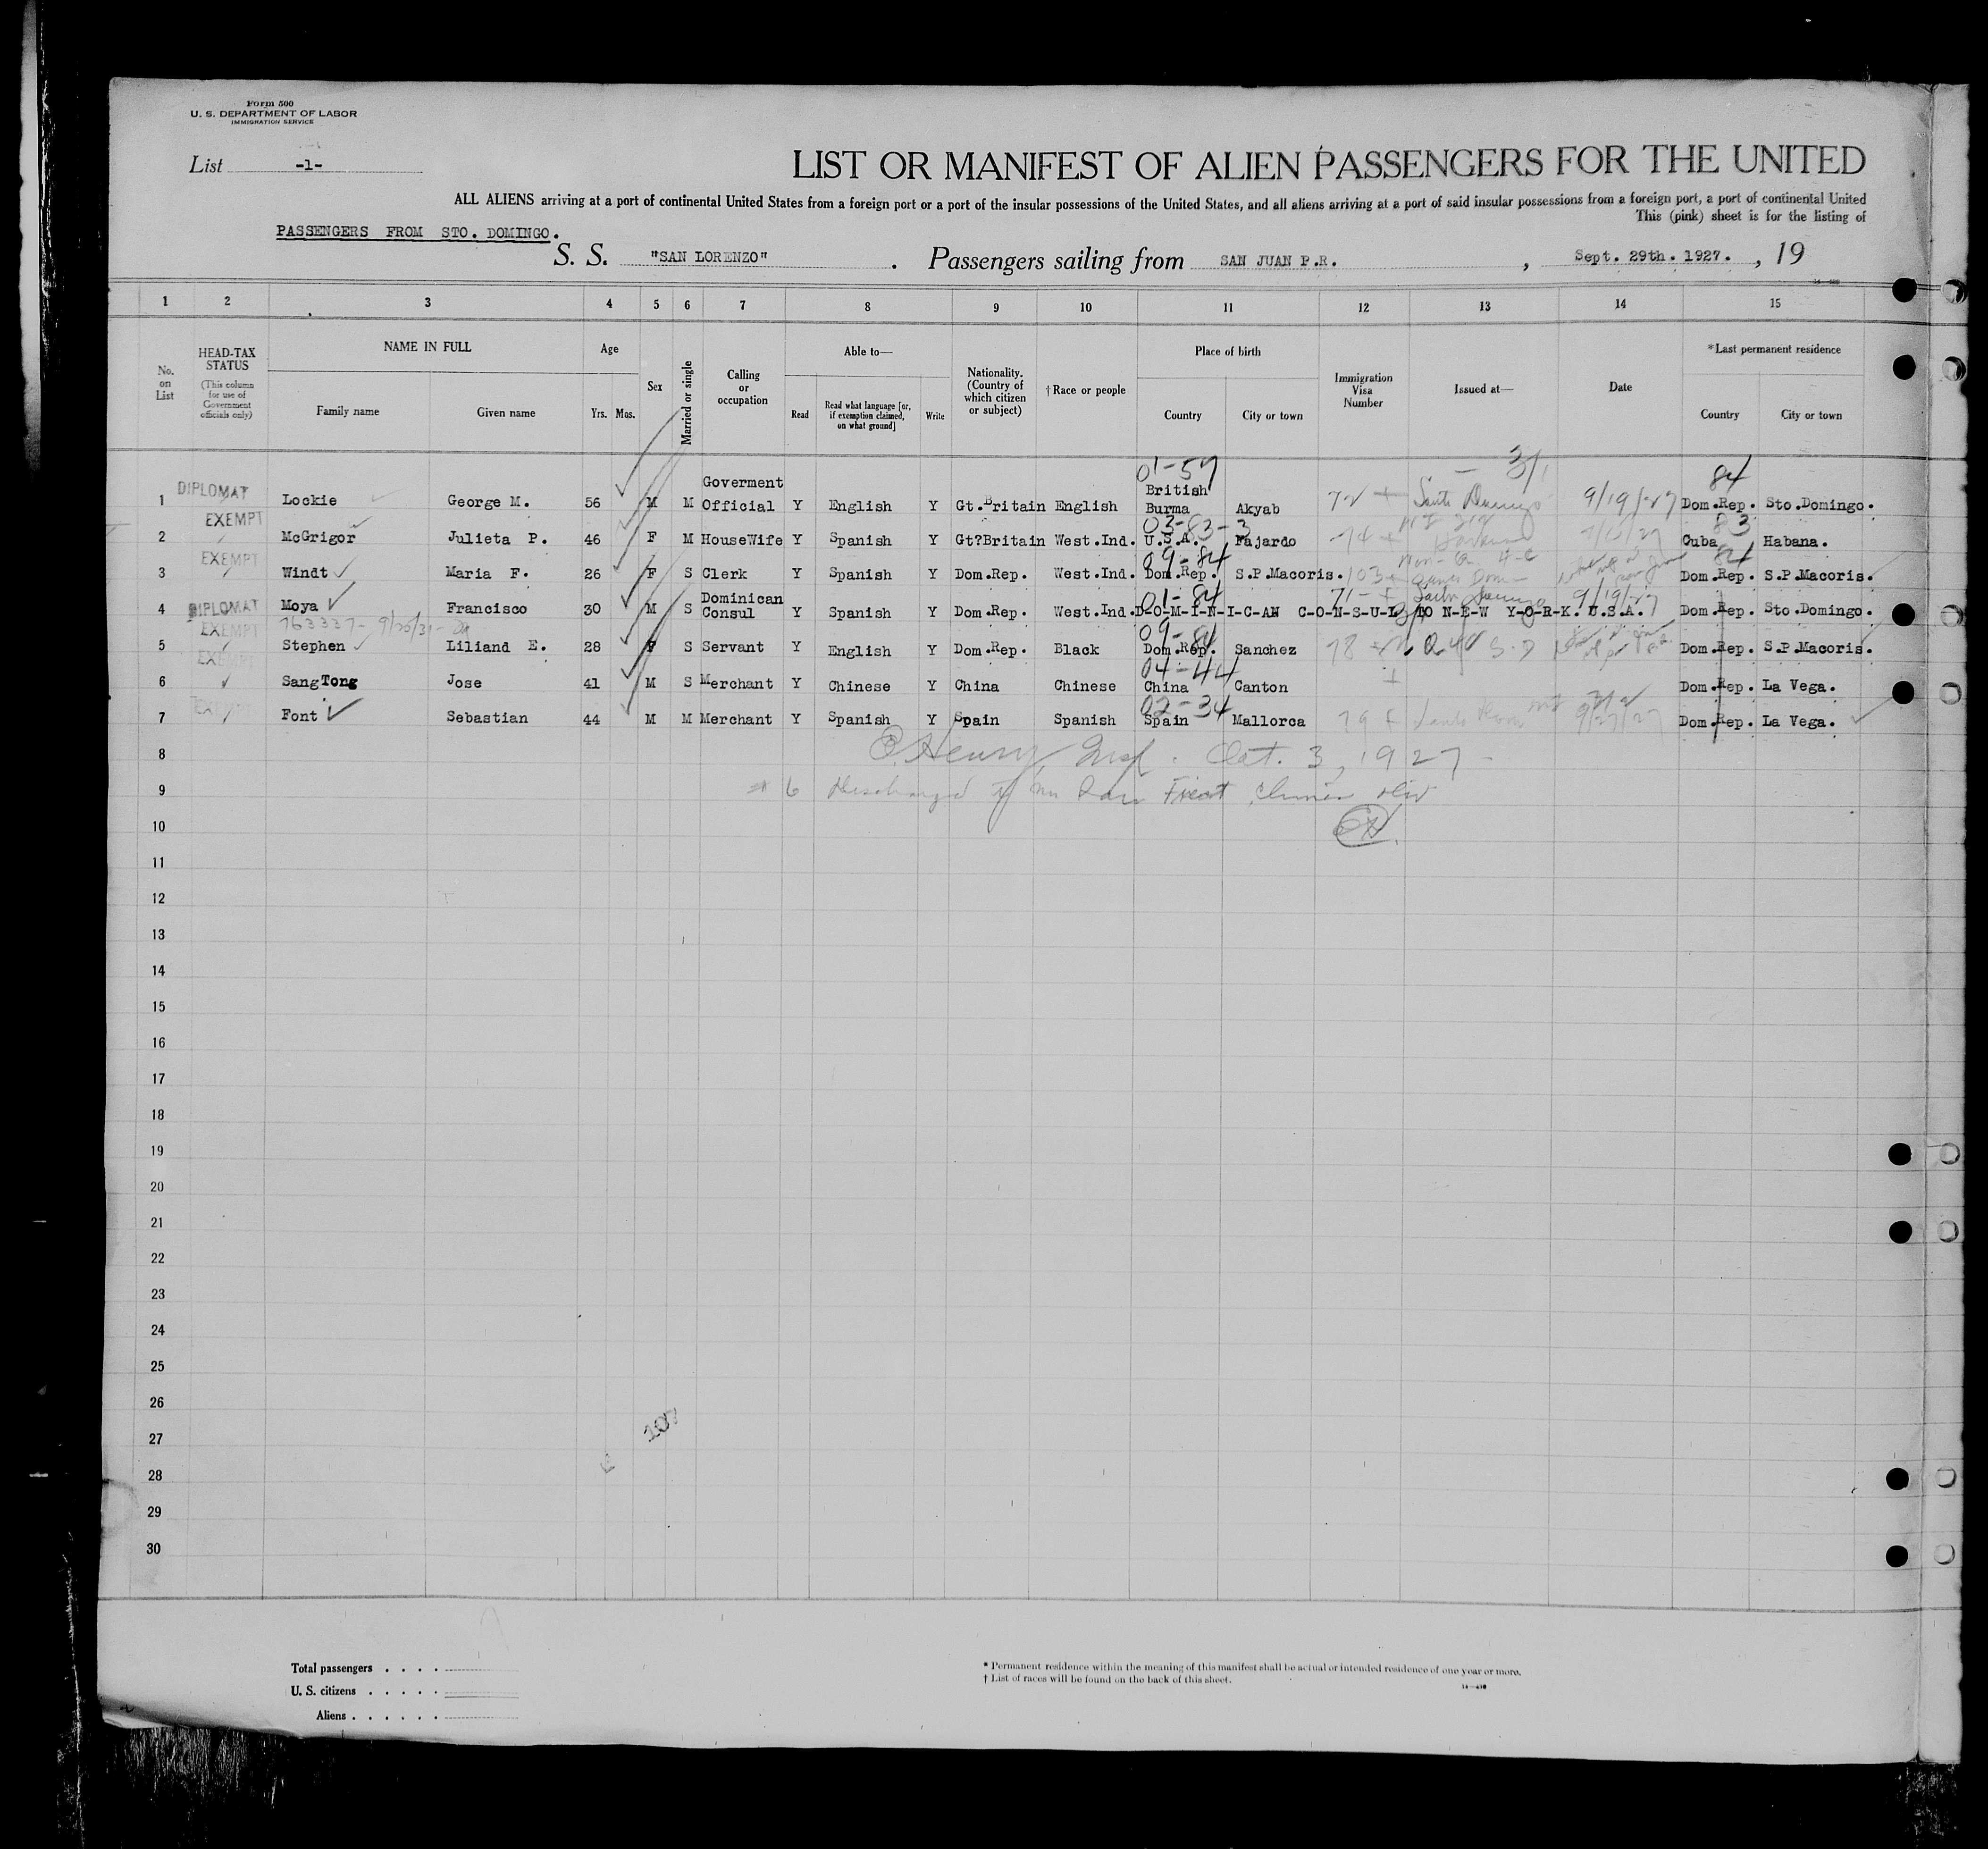 Form 500
U. S. DEPARTMENT OF LABOR
IMMIGRATION SERVICE
List -1-
LIST OR MANIFEST OF ALIEN PASSENGERS FOR THE UNITED
ALL ALIENS arriving at a port of continental United States from a foreign port or a port of the insular possessions of the United States, and all aliens arriving at a port of said insular possessions from a foreign port, a port of continental United
This (pink) sheet is for the listing of
PASSENGERS FROM STO. DOMINGO.
S. S. "SAN LORENZO" . Passengers sailing from SAN JUAN P.R. , Sept. 29th. 1927. , 19
1 2 3 4 5 6 7 8 9 10 11 12 13 14 15
No. on List
HEAD-TAX STATUS
(This column for use of Government officials only)
NAME IN FULL
Family name Given name
Age
Yrs. Mos.
Sex
Married or single
Calling or occupation
Able to—
Read
Read what language [or, if exemption claimed, on what ground]
Write
Nationality. (Country of which citizen or subject)
† Race or people
Place of birth
Country City or town
Immigration Visa Number
Issued at—
Date
*Last permanent residence
Country City or town
01-57 84
1 DIPLOMAT Lockie George M. 56 M M Goverment Official Y English Y Gt.Britain English British Burma Akyab 72 Santo Domingo 9/19/27 Dom.Rep. Sto.Domingo.
03-83-3 83
2 EXEMPT McGrigor Julieta P. 46 F M HouseWife Y Spanish Y Gt?Britain West.Ind. U.S.A. Fajardo 74 Cuba Habana.
09-84 84
3 EXEMPT Windt Maria F. 26 F S Clerk Y Spanish Y Dom.Rep. West.Ind. Dom.Rep. S.P.Macoris. 103 Dom.Rep. S.P.Macoris.
01-84
4 DIPLOMAT Moya Francisco 30 M S Dominican Consul Y Spanish Y Dom.Rep. West.Ind. D-O-M-I-N-I-C-AN C-O-N-S-U-L TO N-E-W Y-O-R-K. U.S.A. 71 9/19/27 Dom.Rep. Sto.Domingo.
763337- 9/25/31
09-84
5 EXEMPT Stephen Liliand E. 28 F S Servant Y English Y Dom.Rep. Black Dom.Rep. Sanchez 78 Dom.Rep. S.P.Macoris.
04-44
6 EXEMPT SangTong Jose 41 M S Merchant Y Chinese Y China Chinese China Canton Dom.Rep. La Vega.
02-34
7 EXEMPT Font Sebastian 44 M M Merchant Y Spanish Y Spain Spanish Spain Mallorca 79 9/27/27 Dom.Rep. La Vega.
8 Henry, Insp. Oct. 3, 1927
9 # 6 Discharged
10
11
12
13
14
15
16
17
18
19
20
21
22
23
24
25
26
27
107
28
29
30
Total passengers . . . .
U. S. citizens . . . . .
Aliens . . . . . .
* Permanent residence within the meaning of this manifest shall be actual or intended residence of one year or more.
† List of races will be found on the back of this sheet.